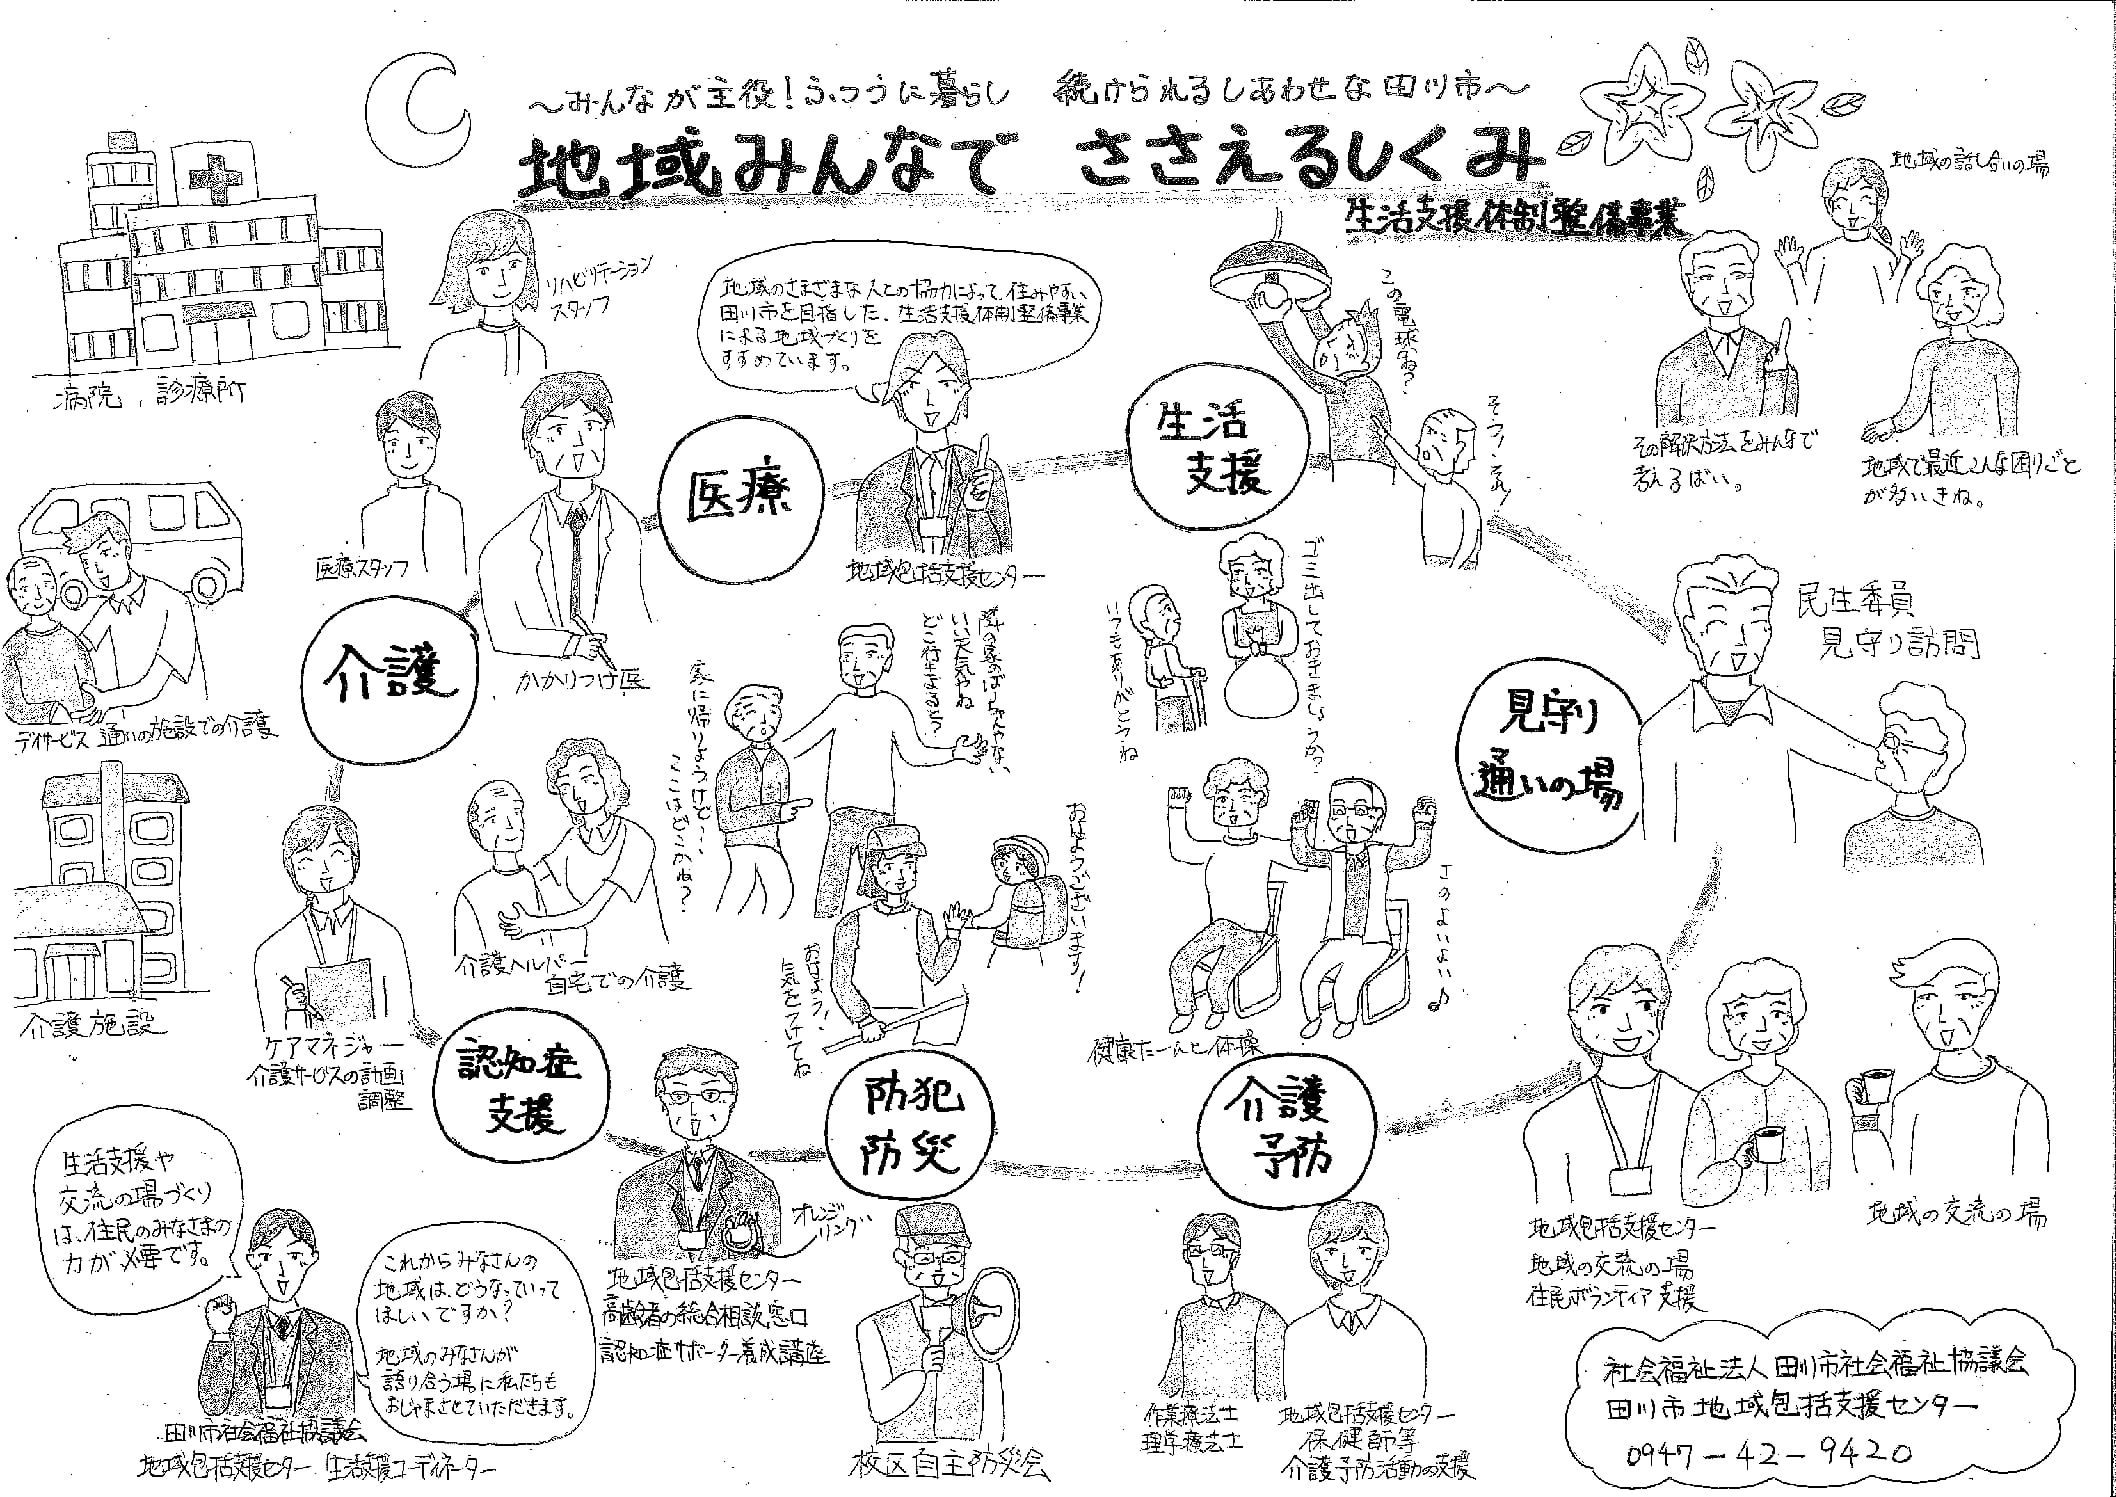 ～みんなが主役！ふつうに暮らし　続けられるしあわせな田川市～
地域みんなで　ささえるしくみ
生活支援体制整備事業
地域の話し合いの場
病院、診療所
リハビリテーション
スタッフ
地域のさまざまな人との協力によって、住みやすい
田川市を目指した、生活支援体制整備事業
による地域づくりを
すすめています。
この電球ね？
そう！それ！
生活
支援
その解決方法をみんなで
考えるばい。
地域で最近こんな困りごと
が多いきね。
医療
医療スタッフ
地域包括支援センター
かかりつけ医
介護
デイサービス 通いの施設での介護
隣の家のばしょんやない
いい天気やね
どこ行きよるとう？
家に帰りようけど…
ここはどこかね？
ゴミ出しておきましょうか？
いつもありがとうね
民生委員
見守り訪問
見守り
通いの場
介護施設
ケアマネジャー
介護サービスの計画
調整
介護ヘルパー
自宅での介護
おはようございます！
おはよう！
気をつけてね
健康たーんと体操
↑のよいよい♪
認知症
支援
防犯
防災
介護
予防
オレンジ
リング
地域包括支援センター
高齢者の総合相談窓口
認知症サポーター養成講座
生活支援や
交流の場づくり
は、住民のみなさまの
力が必要です。
これからみなさんの
地域は、どうなっていって
ほしいですか？
地域のみなさんが
語り合う場に私たちも
おじゃまさせていただきます。
田川市社会福祉協議会
地域包括支援センター 生活支援コーディネーター
校区自主防災会
作業療法士
理学療法士
地域包括支援センター
保健師等
介護予防活動の支援
地域包括支援センター
地域の交流の場
住民ボランティア支援
地域の交流の場
社会福祉法人田川市社会福祉協議会
田川市地域包括支援センター
0947－42－9420